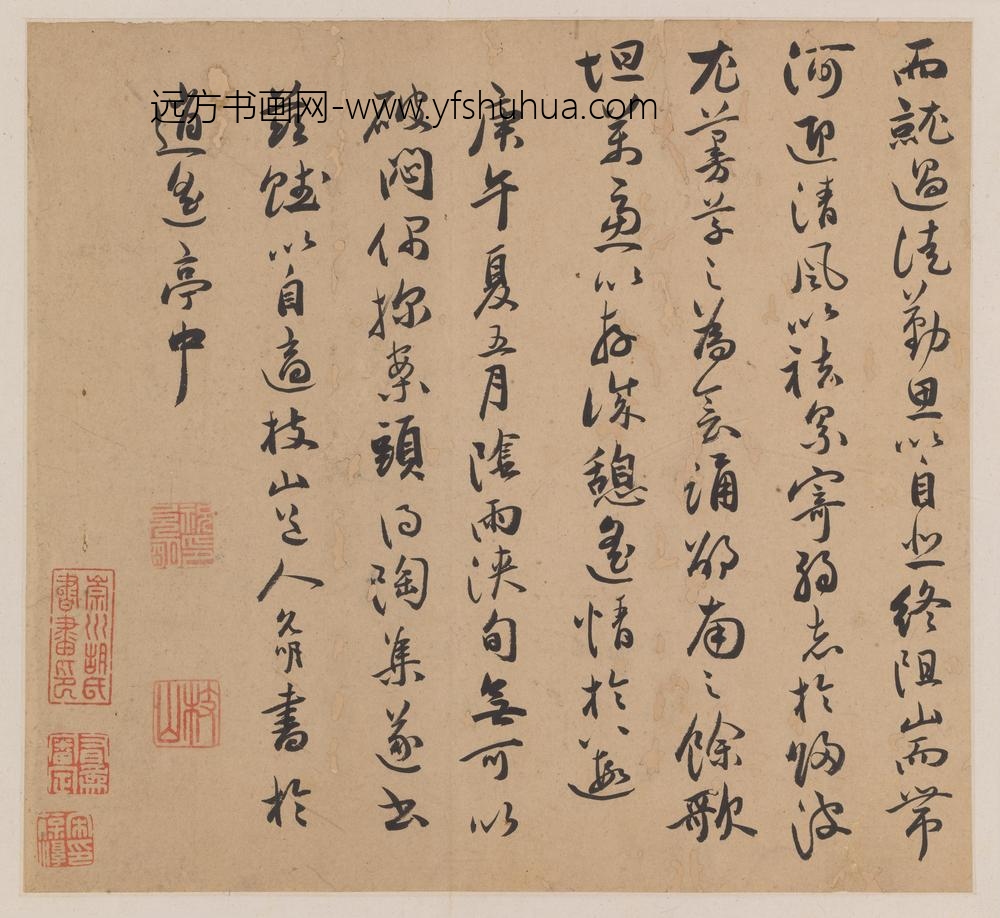 远方书画网-www.yfshuhua.com
而就過徒勤思以自悲終阻山而帶
河迎清風以祛累寄弱志於歸波
尤蔓草之為會誦邵南之餘歌
坦萬慮以存誠憩遙情於八遐
庚午夏五月陰雨浹旬無可以
破悶偶探案頭得陶集遂書
賦以自適枝山道人允明書於
逍遙亭中
枝山
崇川胡氏書畫